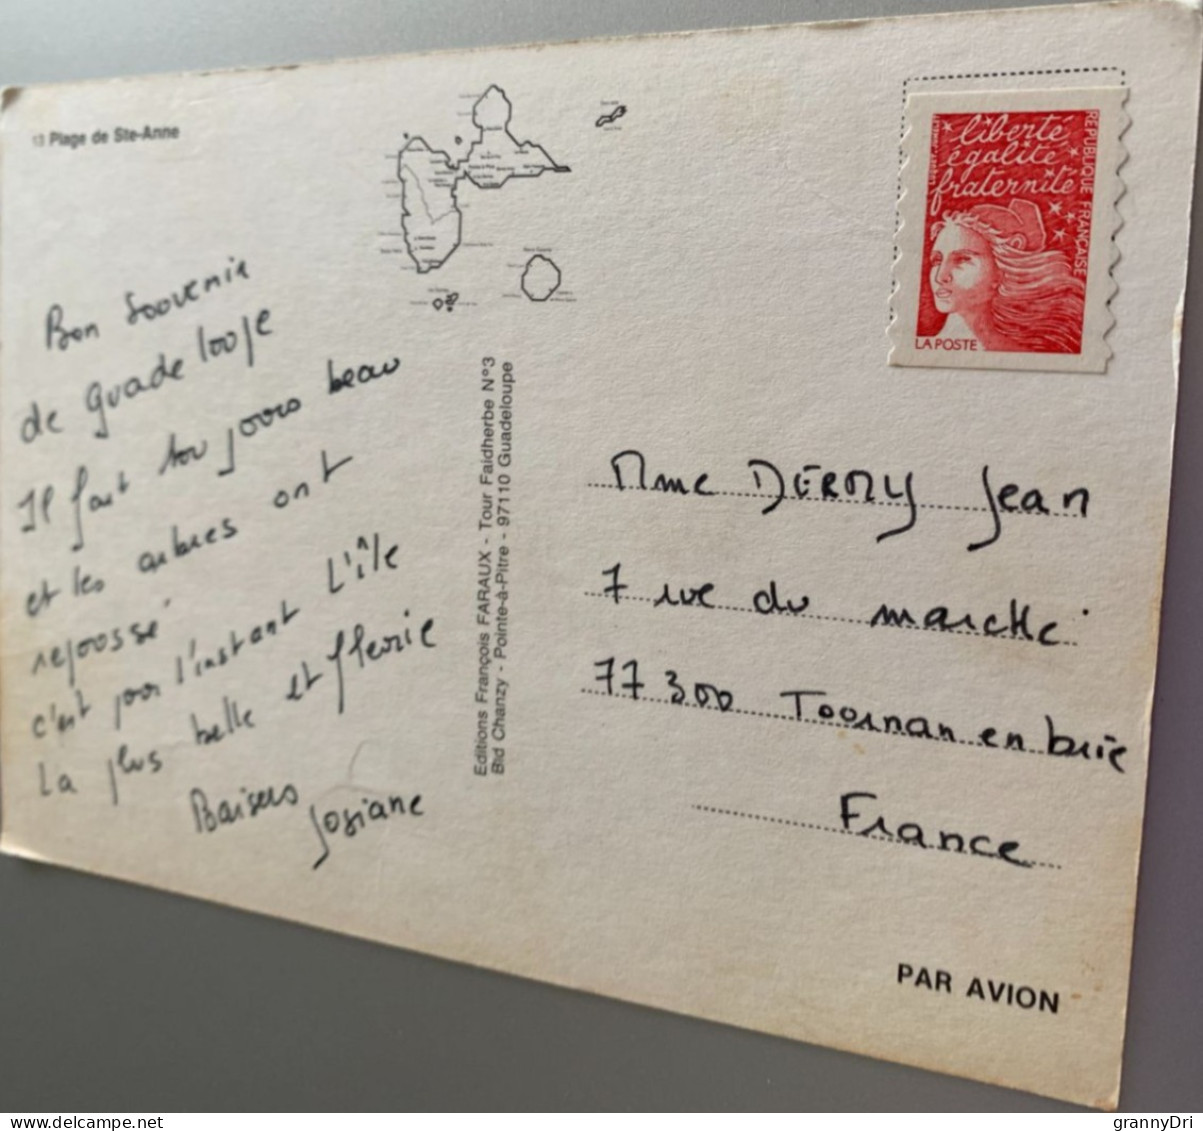 13 Plage de Ste-Anne
Bon Souvenir
de guadeloupe
Il fait toujours beau
et les arbres ont
repoussé
c'est pour l'instant L'île
La plus belle et fleurie
Baisers
Josiane
Editions François FARAUX - Tour Faidherbe N°3
Bld Chanzy - Pointe-à-Pitre - 97110 Guadeloupe
liberté
égalité
fraternité
REPUBLIQUE FRANÇAISE
LA POSTE
Mme DERMY Jean
7 rue du marché
77300 Tournan en brie
France
PAR AVION
grannyDri